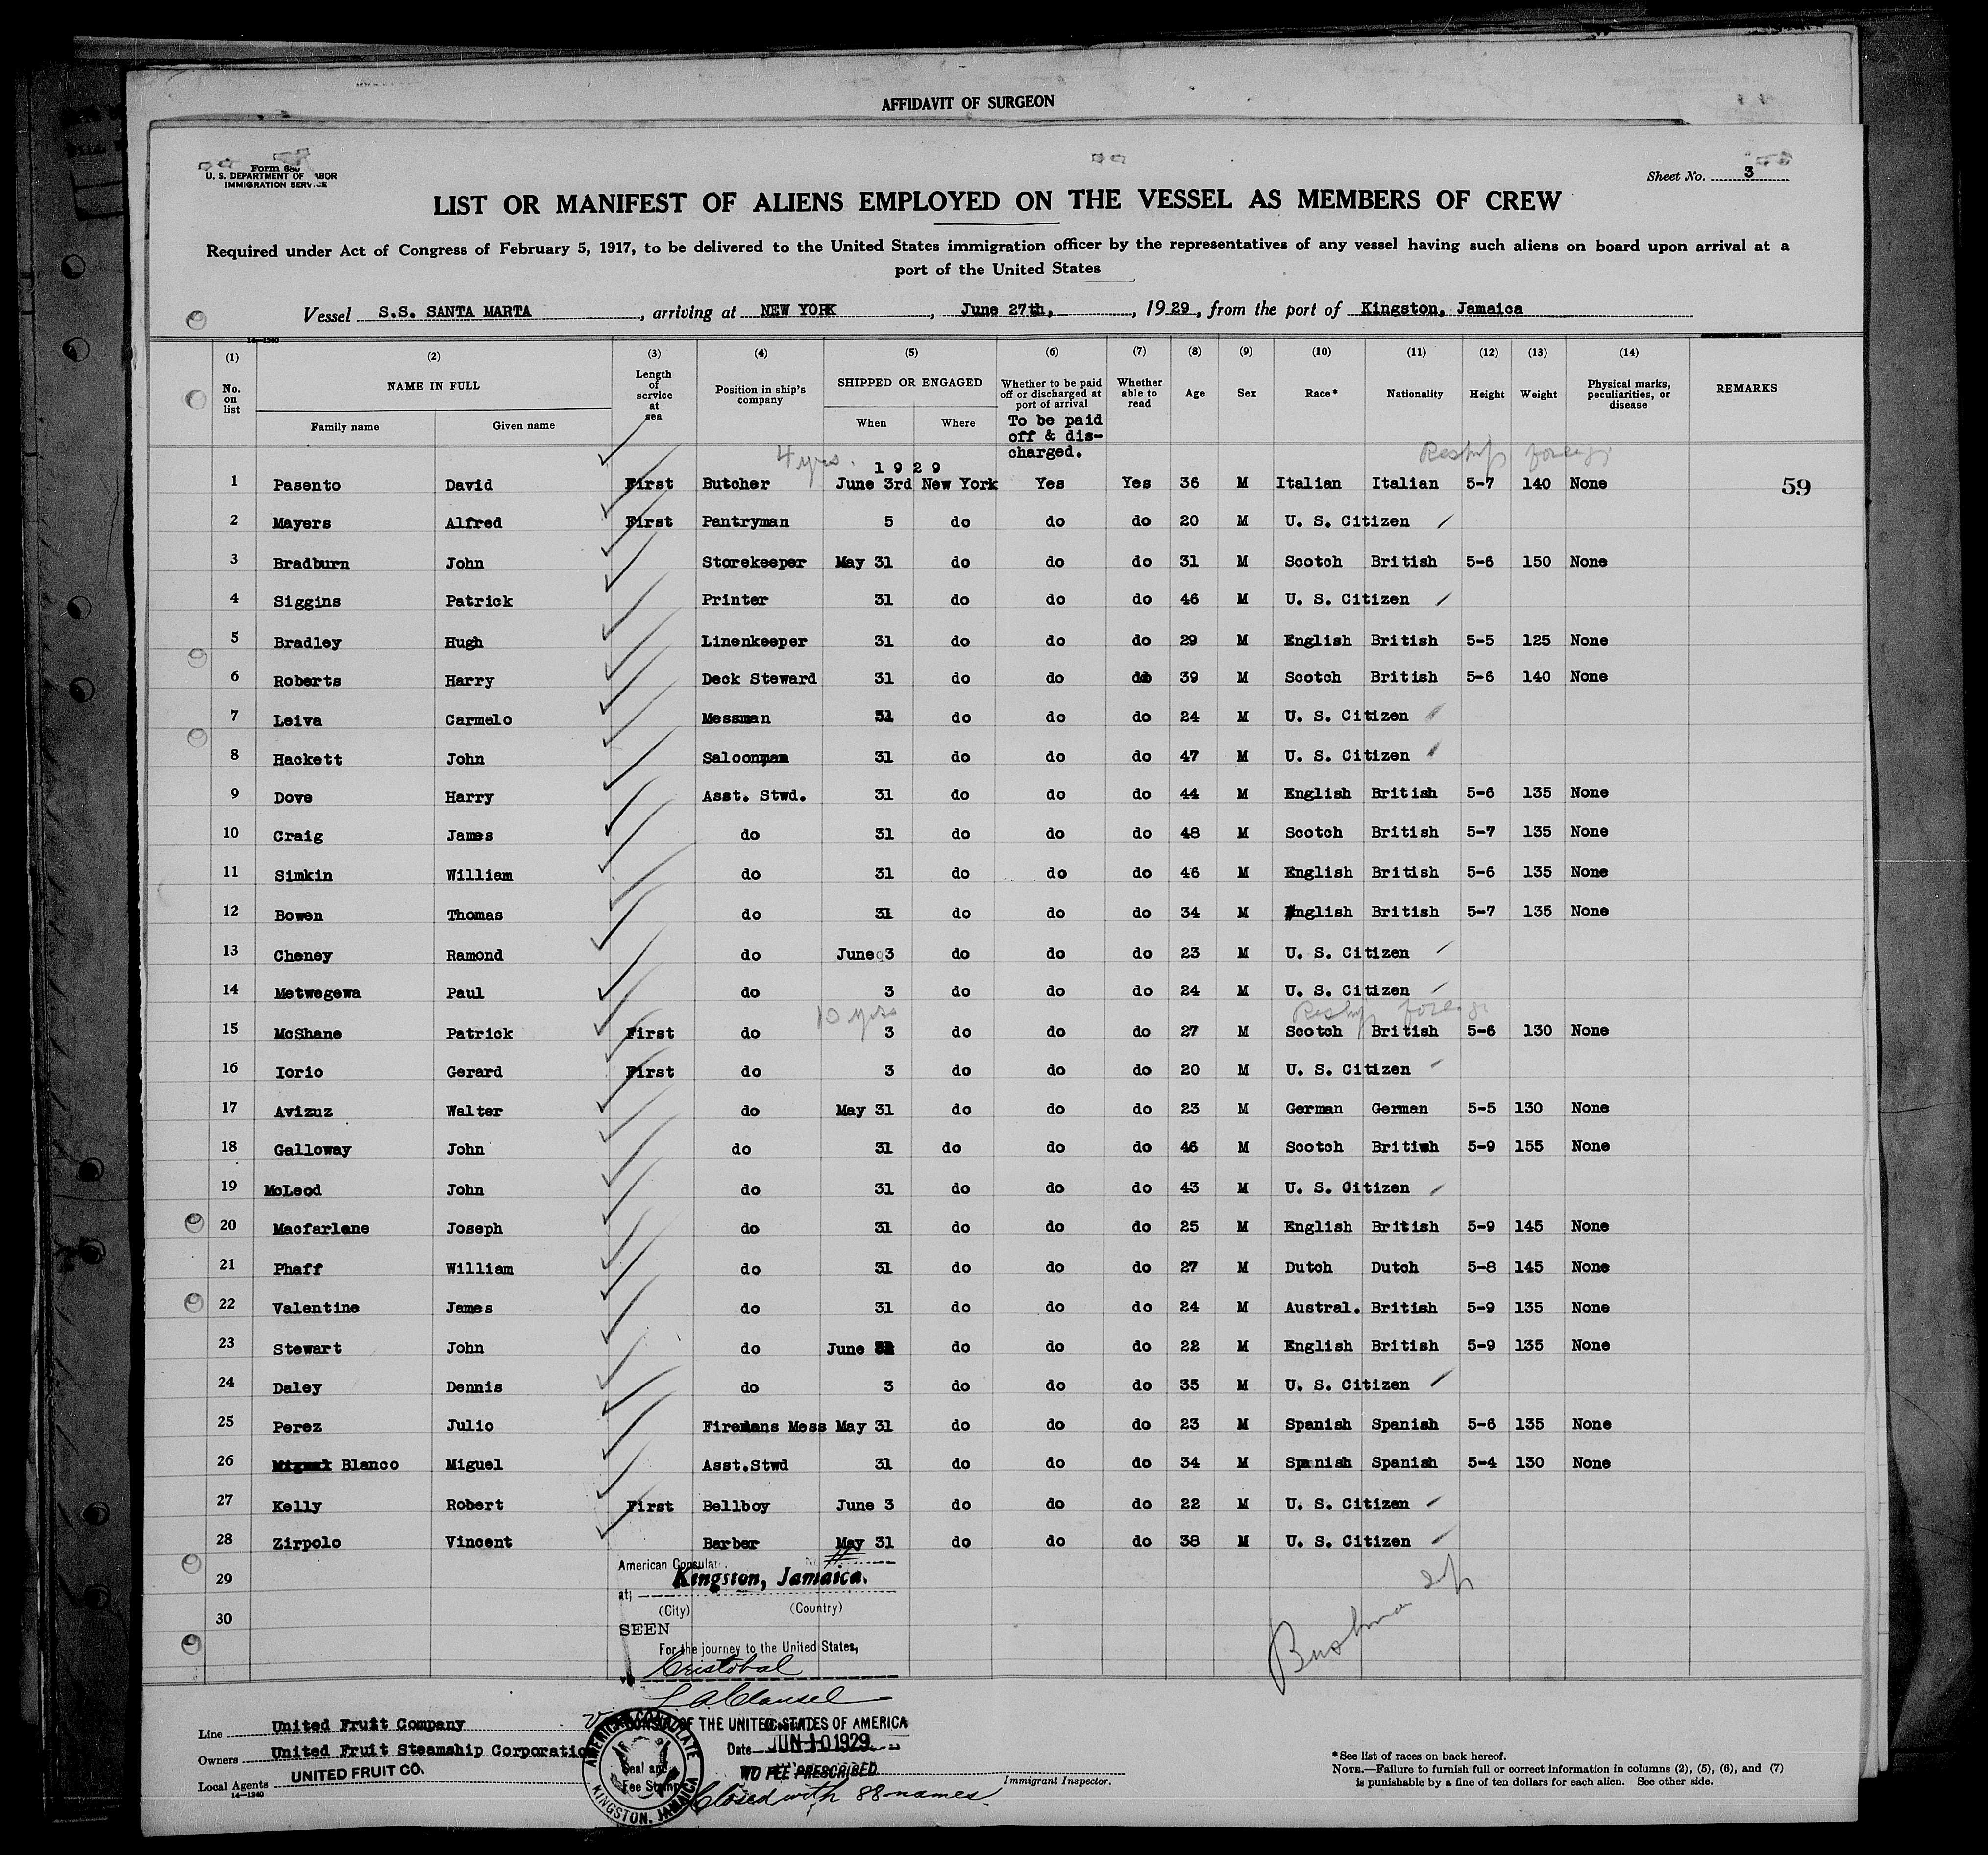 AFFIDAVIT OF SURGEON
Form 680
U. S. DEPARTMENT OF LABOR
IMMIGRATION SERVICE
Sheet No. 3
LIST OR MANIFEST OF ALIENS EMPLOYED ON THE VESSEL AS MEMBERS OF CREW
Required under Act of Congress of February 5, 1917, to be delivered to the United States immigration officer by the representatives of any vessel having such aliens on board upon arrival at a
port of the United States
Vessel S.S. SANTA MARTA, arriving at NEW YORK, June 27th, 1929, from the port of Kingston, Jamaica
14-1240
(1) (2) (3) (4) (5) (6) (7) (8) (9) (10) (11) (12) (13) (14)
No. on list NAME IN FULL Length of service at sea Position in ship's company SHIPPED OR ENGAGED Whether to be paid off or discharged at port of arrival Whether able to read Age Sex Race* Nationality Height Weight Physical marks, peculiarities, or disease REMARKS
Family name Given name When Where To be paid off & dis- charged.
4 yrs. 1929 Reship foreign
1 Pasento David First Butcher June 3rd New York Yes Yes 36 M Italian Italian 5-7 140 None 59
2 Mayers Alfred First Pantryman 5 do do do 20 M U. S. Citizen
3 Bradburn John Storekeeper May 31 do do do 31 M Scotch British 5-6 150 None
4 Siggins Patrick Printer 31 do do do 46 M U. S. Citizen
5 Bradley Hugh Linenkeeper 31 do do do 29 M English British 5-5 125 None
6 Roberts Harry Deck Steward 31 do do do 39 M Scotch British 5-6 140 None
7 Leiva Carmelo Messman 31 do do do 24 M U. S. Citizen
8 Hackett John Saloonman 31 do do do 47 M U. S. Citizen
9 Dove Harry Asst. Stwd. 31 do do do 44 M English British 5-6 135 None
10 Craig James do 31 do do do 48 M Scotch British 5-7 135 None
11 Simkin William do 31 do do do 46 M English British 5-6 135 None
12 Bowen Thomas do 31 do do do 34 M English British 5-7 135 None
13 Cheney Ramond do June 3 do do do 23 M U. S. Citizen
14 Metwegewa Paul do 3 do do do 24 M U. S. Citizen
10 yrs Reship foreign
15 McShane Patrick First do 3 do do do 27 M Scotch British 5-6 130 None
16 Iorio Gerard First do 3 do do do 20 M U. S. Citizen
17 Avizuz Walter do May 31 do do do 23 M German German 5-5 130 None
18 Galloway John do 31 do do do 46 M Scotch Britiwh 5-9 155 None
19 McLeod John do 31 do do do 43 M U. S. Citizen
20 Macfarlane Joseph do 31 do do do 25 M English British 5-9 145 None
21 Phaff William do 31 do do do 27 M Dutch Dutch 5-8 145 None
22 Valentine James do 31 do do do 24 M Austral. British 5-9 135 None
23 Stewart John do June do do do 22 M English British 5-9 135 None
24 Daley Dennis do 3 do do do 35 M U. S. Citizen
25 Perez Julio Firemans Mess May 31 do do do 23 M Spanish Spanish 5-6 135 None
26 Blanco Miguel Asst.Stwd 31 do do do 34 M Spanish Spanish 5-4 130 None
27 Kelly Robert First Bellboy June 3 do do do 22 M U. S. Citizen
28 Zirpolo Vincent Barber May 31 do do do 38 M U. S. Citizen
29
30
American Consulat No
at; Kingston, Jamaica.
(City) (Country)
SEEN
For the journey to the United States,
Cristobal
CONSUL OF THE UNITED STATES OF AMERICA
Date JUN 10 1929
NO FEE PRESCRIBED
Closed with 88 names.
AMERICAN CONSULATE
KINGSTON, JAMAICA
Seal and
Fee Stamp
Line United Fruit Company
Owners United Fruit Steamship Corporatio
Local Agents UNITED FRUIT CO.
14-1240
Immigrant Inspector.
*See list of races on back hereof.
NOTE.—Failure to furnish full or correct information in columns (2), (5), (6), and (7)
is punishable by a fine of ten dollars for each alien. See other side.